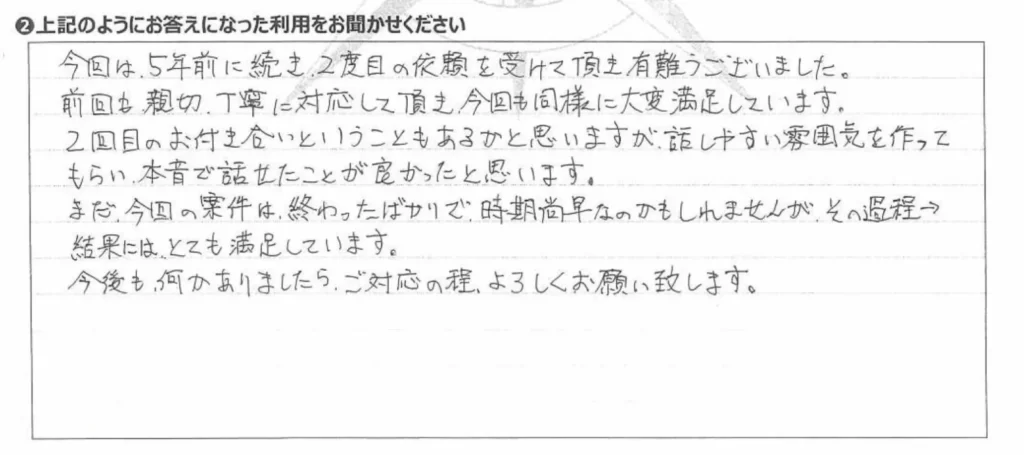 ❷上記のようにお答えになった利用をお聞かせください
今回は、5年前に続き、2度目の依頼を受けて頂き有難うございました。
前回も親切、丁寧に対応して頂き、今回も同様に大変満足しています。
2回目のお付き合いということもあるかと思いますが、話しやすい雰囲気を作って
もらい、本音で話せたことが良かったと思います。
まだ、今回の案件は、終わったばかりで、時期尚早なのかもしれませんが、その過程→
結果には、とても満足しています。
今後も、何かありましたら、ご対応の程、よろしくお願い致します。